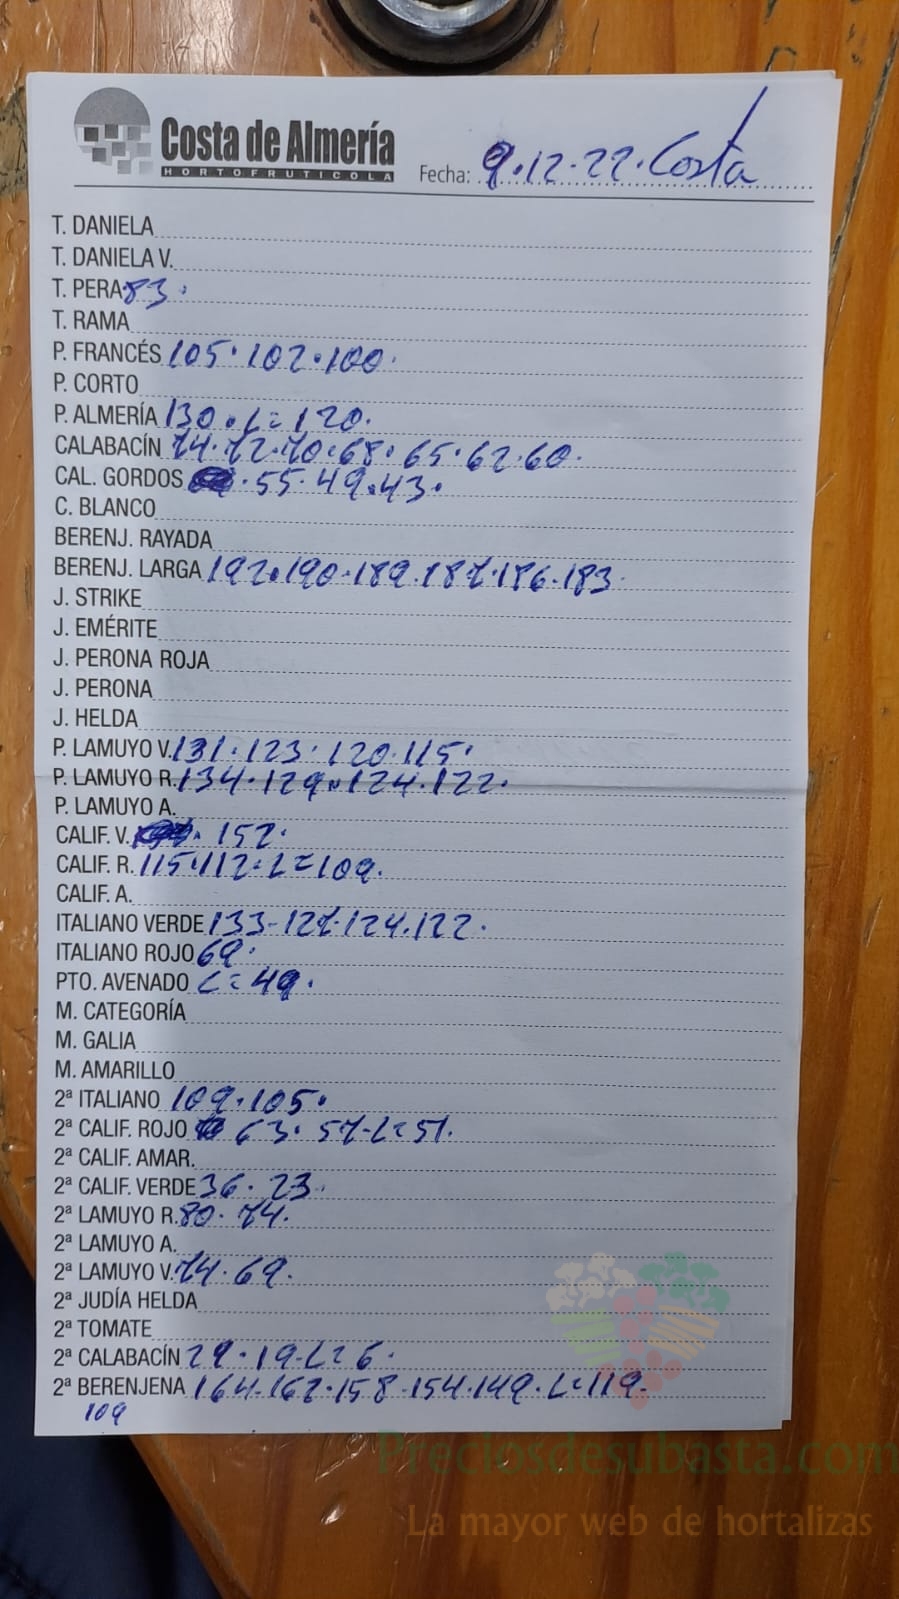 Costa de Almería
HORTOFRUTICOLA
Fecha: 9.12.22. Costa
T. DANIELA
T. DANIELA V.
T. PERA 83.
T. RAMA
P. FRANCÉS 105.102.100.
P. CORTO
P. ALMERÍA 130.L=120.
CALABACÍN 74.72.70.68.65.62.60.
CAL. GORDOS .55.49.43.
C. BLANCO
BERENJ. RAYADA
BERENJ. LARGA 192.190.189.187.186.183.
J. STRIKE
J. EMÉRITE
J. PERONA ROJA
J. PERONA
J. HELDA
P. LAMUYO V. 131.123.120.115.
P. LAMUYO R. 134.129.124.122.
P. LAMUYO A.
CALIF. V. . 152.
CALIF. R. 115.112.L=109.
CALIF. A.
ITALIANO VERDE 133-127.124.122.
ITALIANO ROJO 69.
PTO. AVENADO L=49.
M. CATEGORÍA
M. GALIA
M. AMARILLO
2ª ITALIANO 109.105.
2ª CALIF. ROJO 63.57-L=51.
2ª CALIF. AMAR.
2ª CALIF. VERDE 36.23.
2ª LAMUYO R. 80.74.
2ª LAMUYO A.
2ª LAMUYO V. 74.69.
2ª JUDÍA HELDA
2ª TOMATE
2ª CALABACÍN 29.19-L=6.
2ª BERENJENA 164-162.158-154.149.L=119-
109
Preciosdesubasta.com
La mayor web de hortalizas